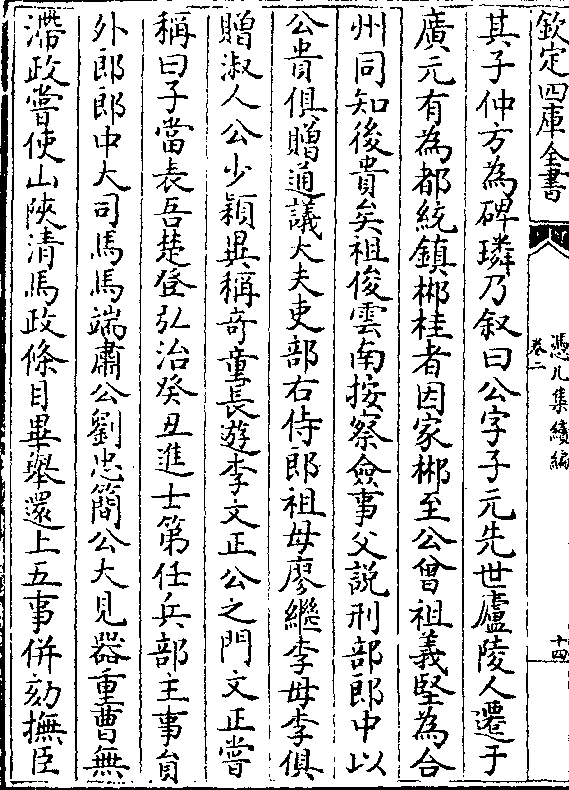 欽定四庫全書
憑几集續編
卷二
十四
其子仲方為碑璘乃叙曰公字子元先世廬陵人遷于
廣元有為都統鎮郴桂者因家郴至公曾祖義堅為合
州同知後貴矣祖俊雲南按察僉事父説刑部郎中以
公貴俱贈通議大夫吏部右侍郎祖母廖繼李母李俱
贈淑人公少穎異稱奇童長遊李文正公之門文正嘗
稱曰子當表吾楚登弘治癸丑進士第任兵部主事員
外郎郎中大司馬馬端肅公劉忠簡公大見器重曹無
滯政嘗使山陜清馬政條目畢舉還上五事併劾撫臣